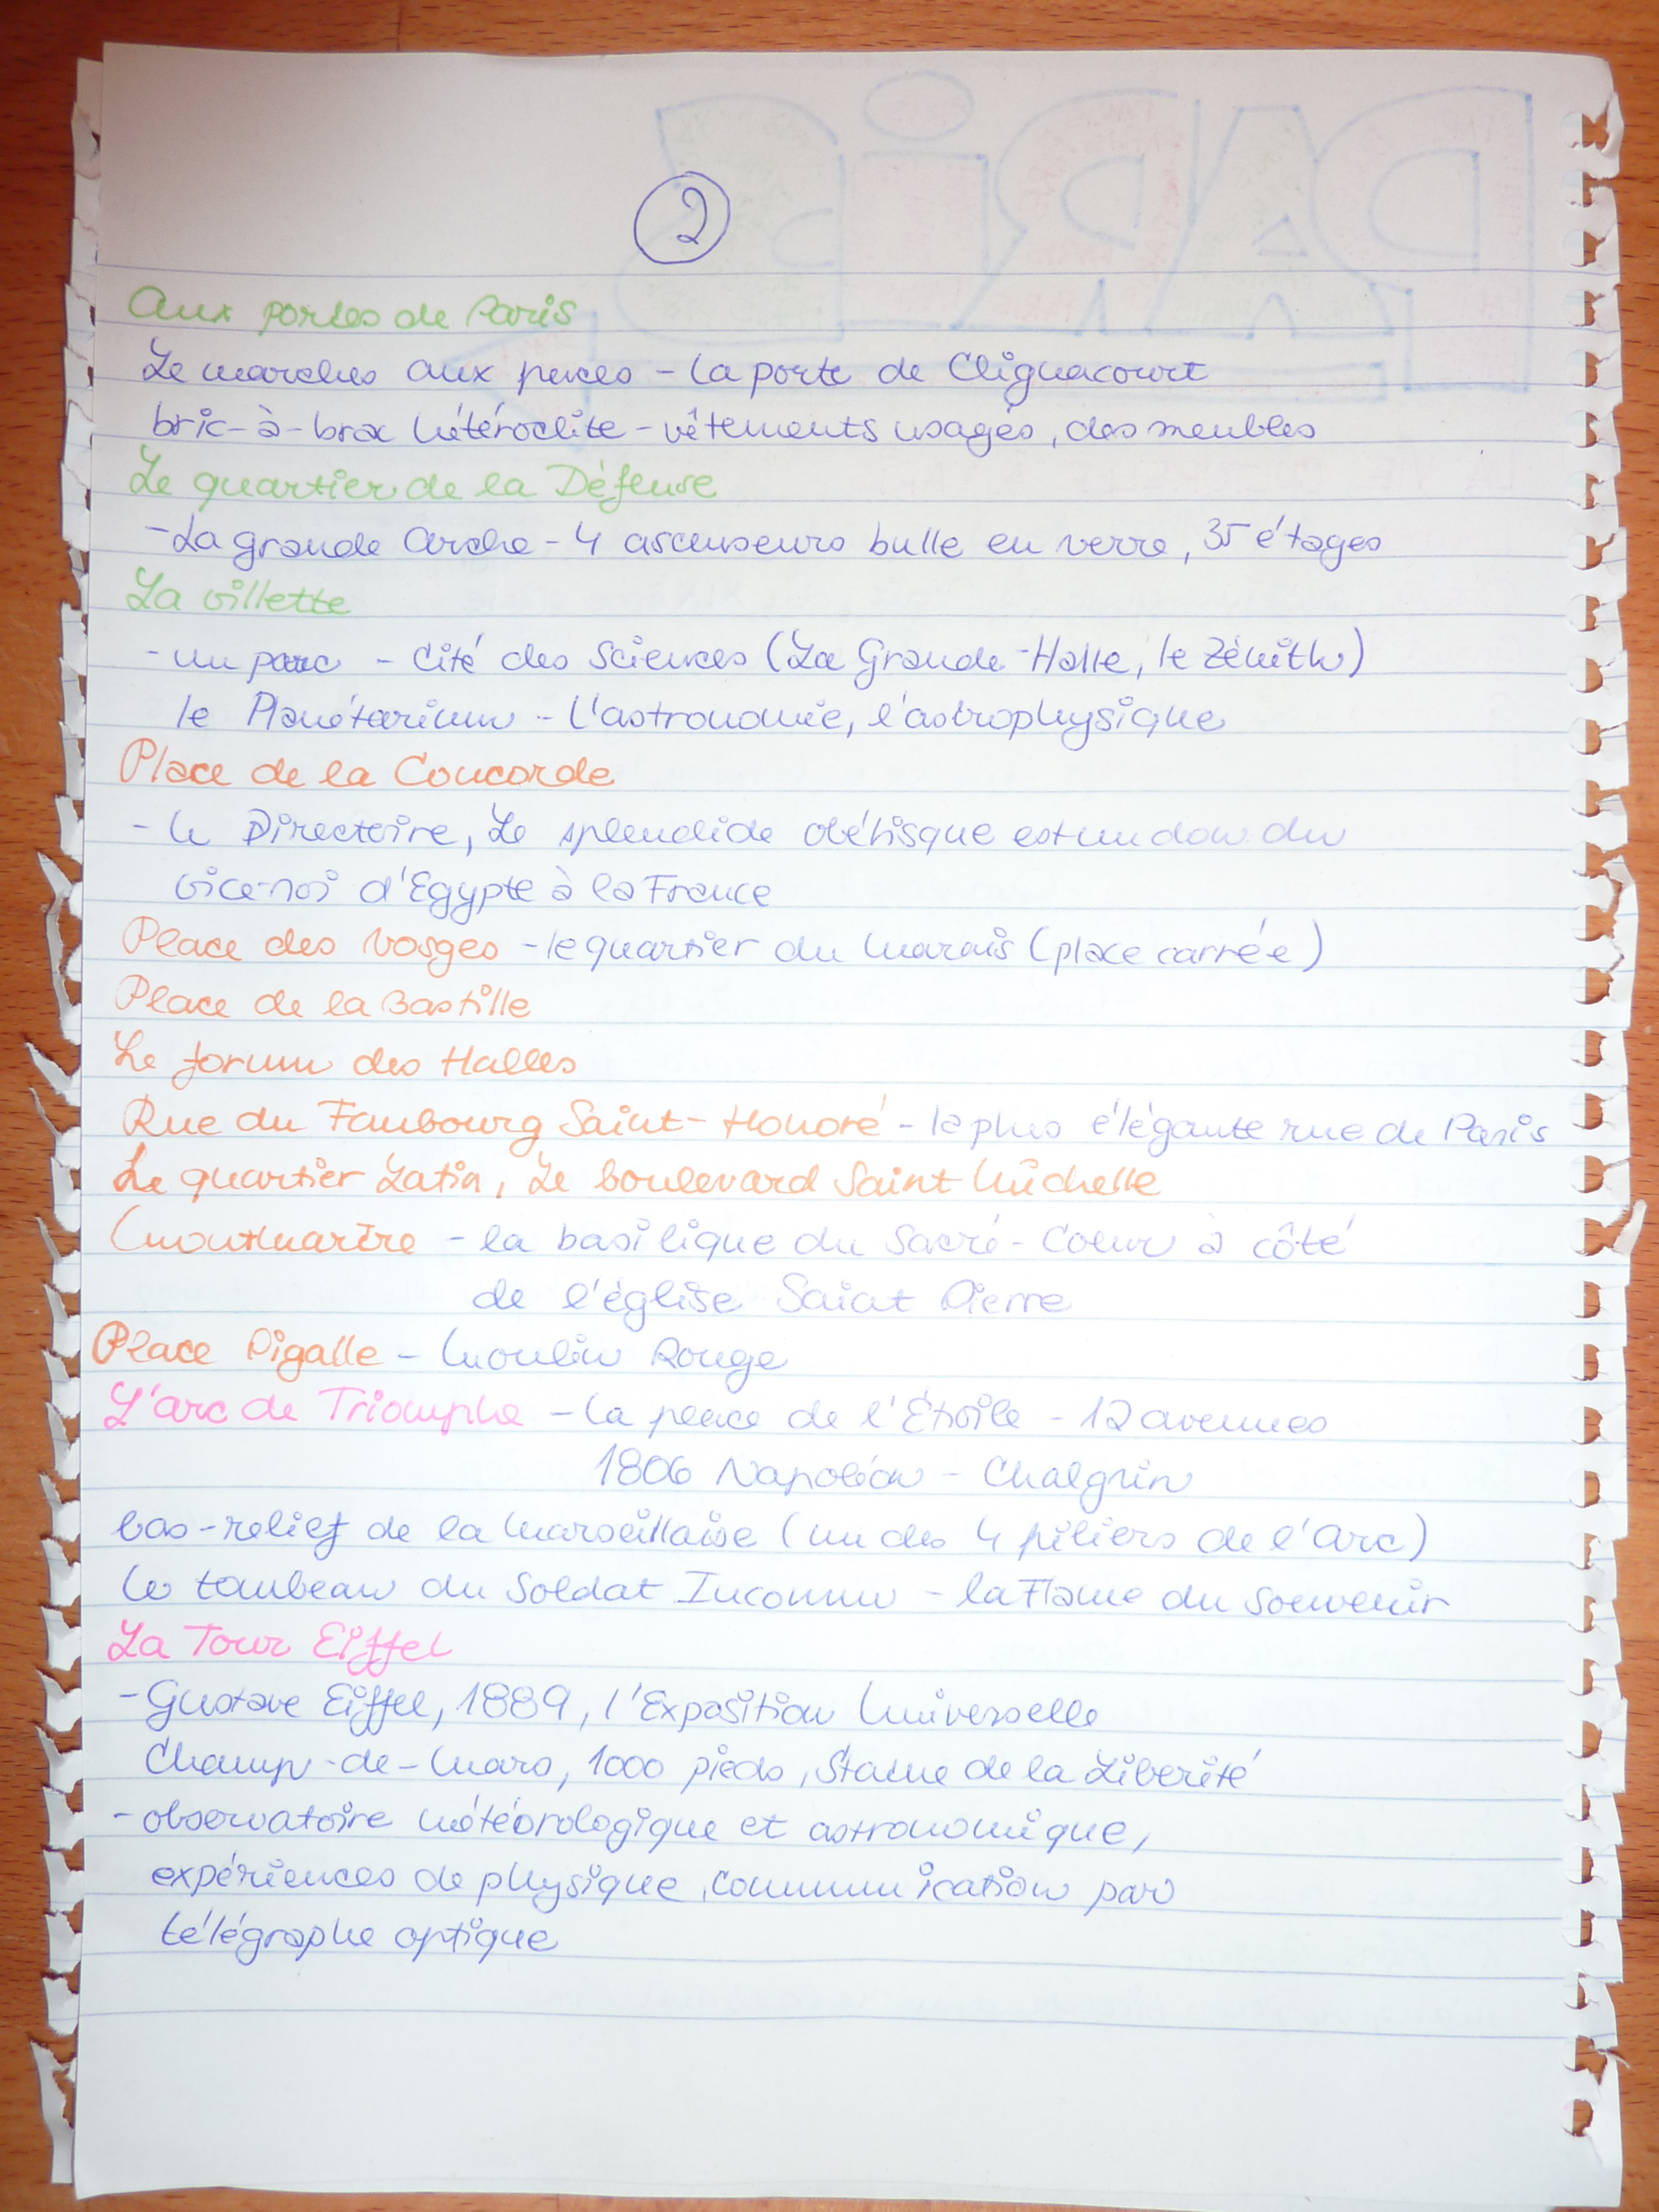 2
Aux portes de Paris
Le marches aux puces - la porte de Clignacourt
bric-à-brac hétéroclite - vêtements usagés, des meubles
Le quartier de la Défense
- La grande Arche - 4 ascenseurs bulle en verre, 35 étages
La Villette
- un parc - Cité des Sciences (La Grande-Halle, le Zénith)
le Planétarium - l'astronomie, l'astrophysique
Place de la Concorde
- le Directoire, Le splendide obélisque est un don du
vice-roi d'Egypte à la France
Place des Vosges - le quartier du Marais (place carrée)
Place de la Bastille
Le forum des Halles
Rue du Faubourg Saint-Honoré - la plus élégante rue de Paris
Le quartier Latin, Le boulevard Saint Michelle
Montmartre - la basilique du Sacré-Coeur à côté
de l'église Saint Pierre
Place Pigalle - Moulin Rouge
L'arc de Triomphe - la place de l'Étoile - 12 avenues
1806 Napoléon - Chalgrin
bas-relief de la Marseillaise (un des 4 piliers de l'Arc)
le tombeau du Soldat Inconnu - la Flame du Souvenir
La Tour Eiffel
- Gustave Eiffel, 1889, l'Exposition Universelle
Champ-de-Mars, 1000 pieds, Statue de la Liberité
- observatoire météorologique et astronomique,
expériences de physique, communication par
télégraphe optique